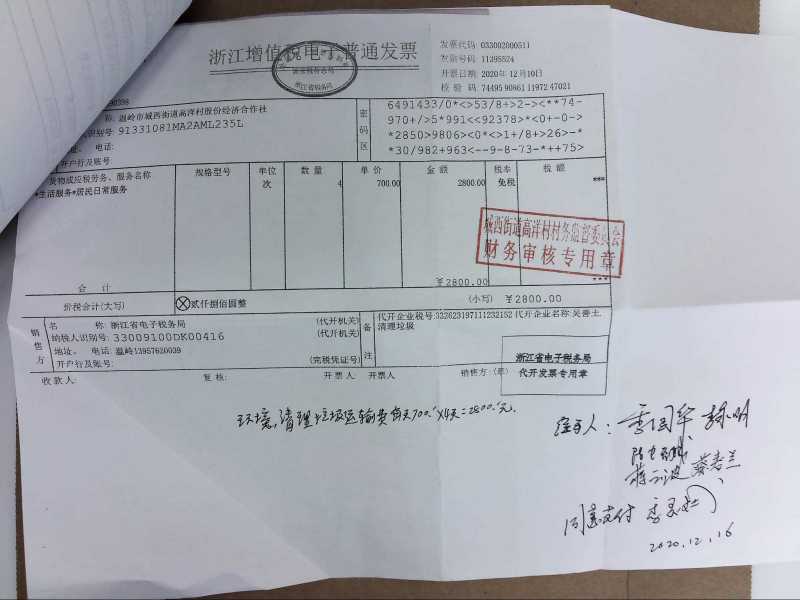 浙江增值税电子普通发票
浙江省税务局
发票代码: 033002000511
发票号码: 11295524
开票日期: 2020年12月10日
校验码: 74495 90861 11972 47021
温岭市城西街道高洋村股份经济合作社
识别号: 91331081MA2AML235L
电话:
开户行及账号
密码区
6491433/0*<>53/8+>2-><**74-
970+/>5*991<<92378>*<0+-0->
*2850>9806><0*<>1+/8+>26>-*
*30/982+963<--9-8-73-*++75>
货物或应税劳务、服务名称 规格型号 单位 数量 单价 金额 税率 税额
*生活服务*居民日常服务 次 4 700.00 2800.00 免税 ***
城西街道高洋村村务监督委员会
财务审核专用章
合计 ￥2800.00 ***
价税合计(大写) 贰仟捌佰圆整 (小写) ￥2800.00
销售方
名称: 浙江省电子税务局 (代开机关)
纳税人识别号: 33009100DK00416 (代开机关)
地址、电话: 温岭13957620039
开户行及账号: (完税凭证号)
备注
代开企业税号:332623197111232152 代开企业名称:吴善土,
清理垃圾
浙江省电子税务局
代开发票专用章
收款人: 复核: 开票人: 开票人 销售方:(章)
环境,清理垃圾运输费每天700.×4天=2800.元.
经手人:
同意支付
2020.12.16